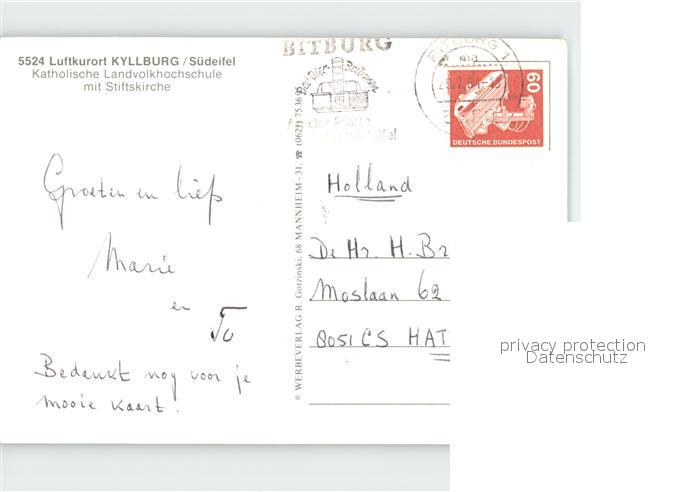 5524 Luftkurort KYLLBURG / Südeifel
Katholische Landvolkhochschule
mit Stiftskirche
BITBURG
BITBURG 1
60
DEUTSCHE BUNDESPOST
© WERBEVERLAG R. Gorzinski, 68 MANNHEIM-31, ☎ (0621)
Groeten en liefs
Marie
en
Jo
Bedankt nog voor je
mooie kaart.
Holland
De Hr. H. Br
Moslaan 62
8051 CS HAT
privacy protection
Datenschutz